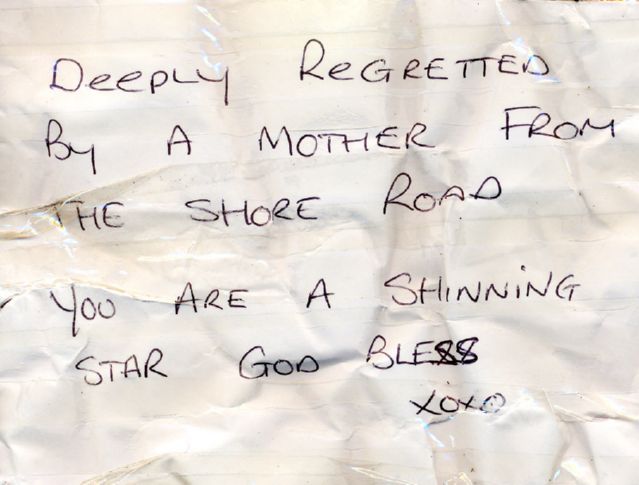 Deeply ReGRETTED
By A MOTHER FROM
THE SHORE ROAD
YOU ARE A SHINNING
STAR GOD BLESS
XOXO